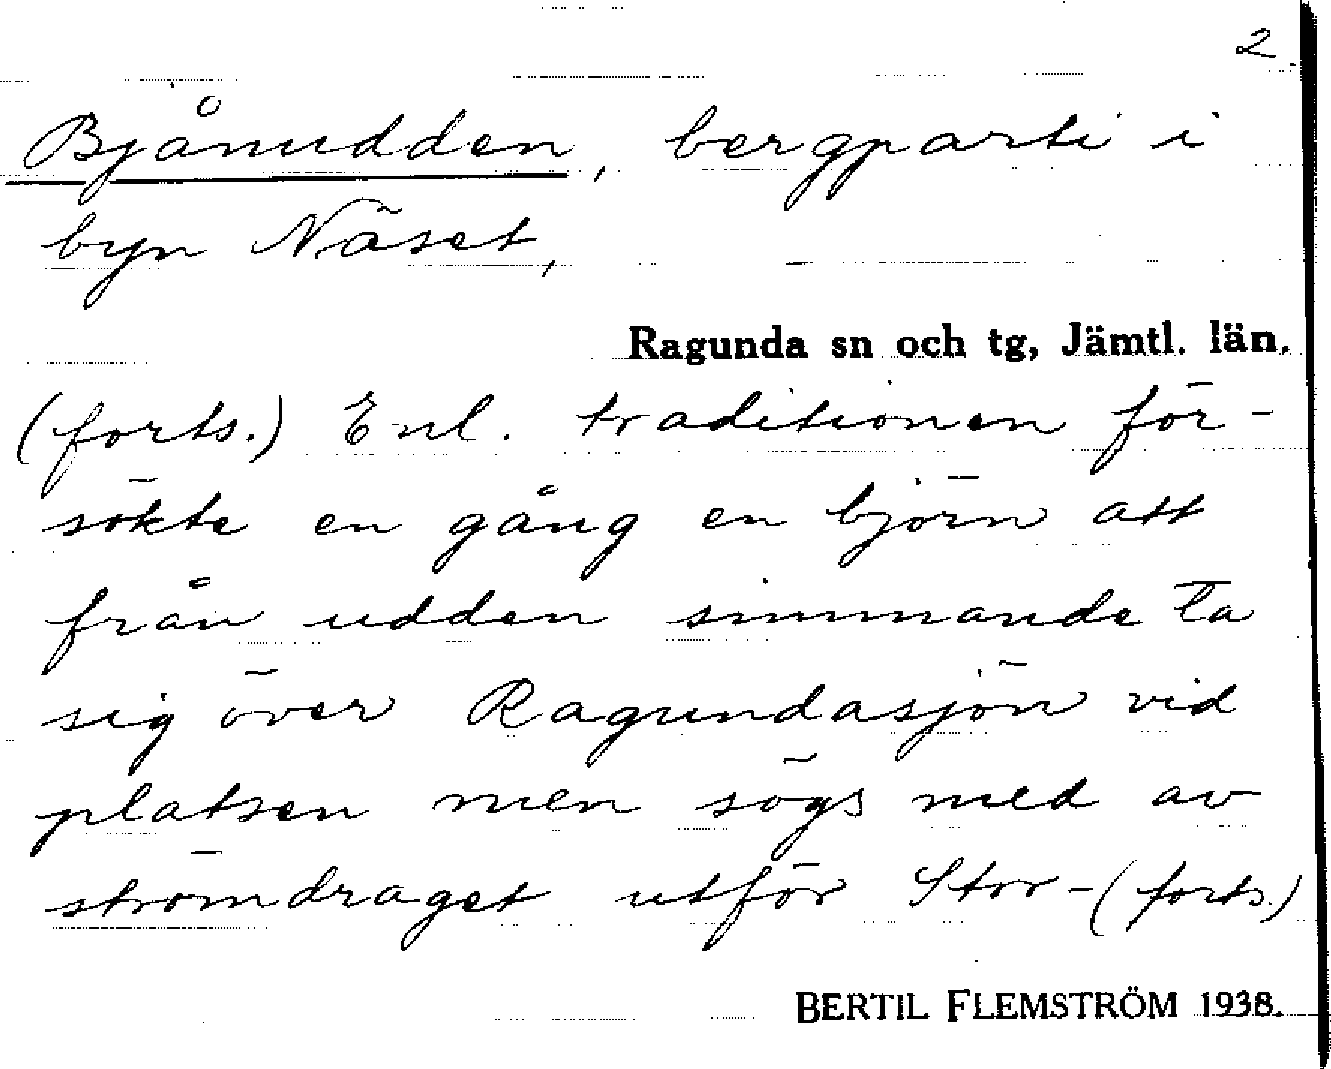 2
Bjånudden, bergparti i
byn Näset,
Ragunda sn och tg, Jämtl. län.
(forts.) Enl. traditionen för-
sökte en gång en björn att
från udden simmande ta
sig över Ragundasjön vid
platsen men sögs med av
strömdraget utför Stor- (forts.)
BERTIL FLEMSTRÖM 1938.